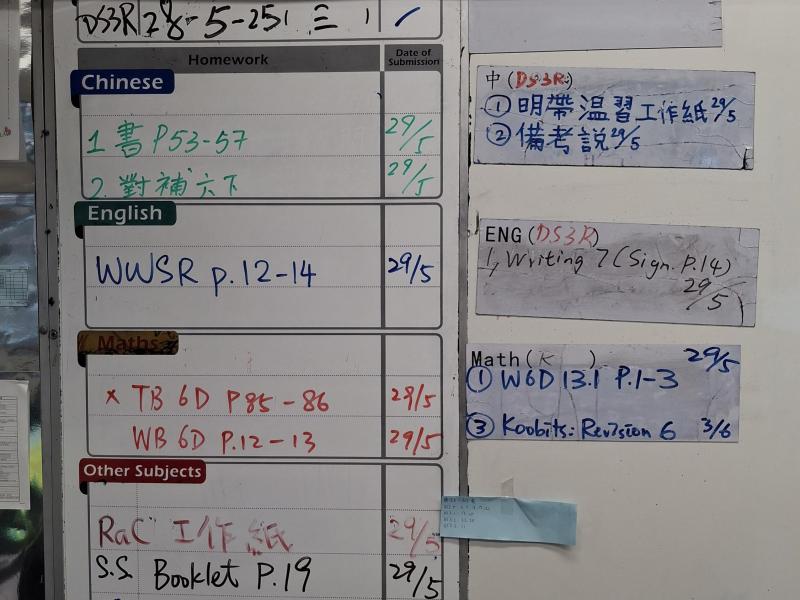 DS3R 28-5-25 三 1
Homework
Date of Submission
Chinese
1. 書 P53-57 29/5
2. 對補六下 29/5
English
WWSR p.12-14 29/5
Maths
x TB 6D P85-86 29/5
WB 6D P.12-13 29/5
Other Subjects
RaC 工作紙 29/5
S.S. Booklet P.19 29/5
中 (DS3R)
① 明帶溫習工作紙 29/5
② 備考說 29/5
ENG (DS3R)
1, Writing 7 (Sign. P.14)
29/5
Math (K ) 29/5
① W6D 13.1 P.1-3
③ Koobits: Revision 6 3/6